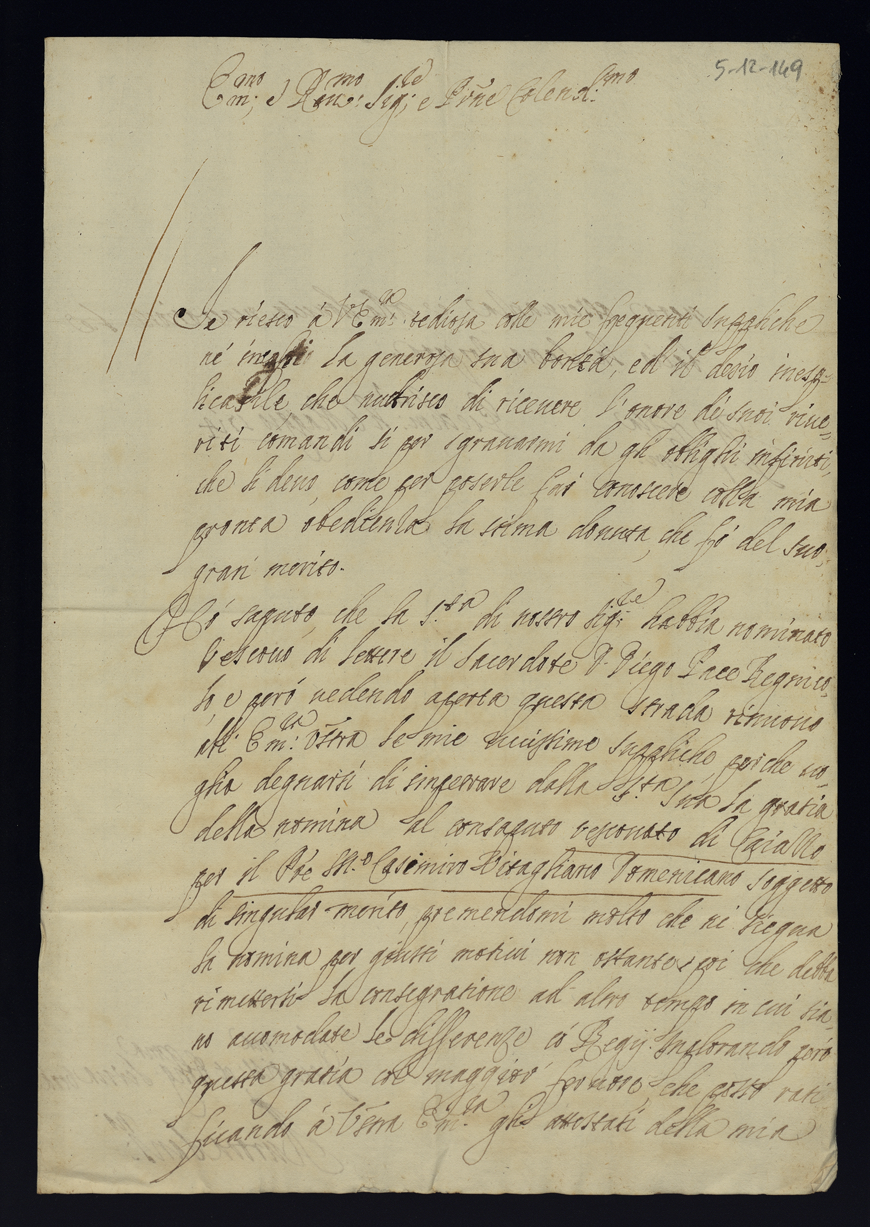 5-12-149
Em:mo, e Rmo: Sig:re e Prne Colend:mo
Se riesco à V Em:za tediosa colle mie frequenti suppliche
né incolpi la generosa sua bontà, ed il desio inespli-
licabile che nutrisco di ricevere l'onore de suoi rive-
riti comandi si per sgravarmi da gli oblighi infiniti,
che li devo come per poterle far conoscere colla mia
pronta obedienza la stima dovuta, che fò del suo
gran merito.
Hò saputo, che la S.ta di nostro Sig:re habbia nominato
Vescovo di Lettere il Sacerdote D. Diego Pace Regnico-
lo, e però vedendo aperta questa strada rinuovo
all' Em:za Vstra le mie vivissime suppliche perche vo-
glia degnarsi di impetrare dalla S.ta Sua la gratia
della nomina al consaputo vescovato di Caiazzo
per il Pre M.ro Casimiro Vitagliano Domenicano soggetto
di singular merito, premendomi molto che ni siegua
la nomina per giusti motivi non ostante poi che debba
rimettersi la consegratione ad altro tempo in cui sia-
no accomodate le differenze có Regij. Implorando però
questa gratia col maggior fervore, che posso rati-
ficando à Vstra Em:za gli attestati della mia